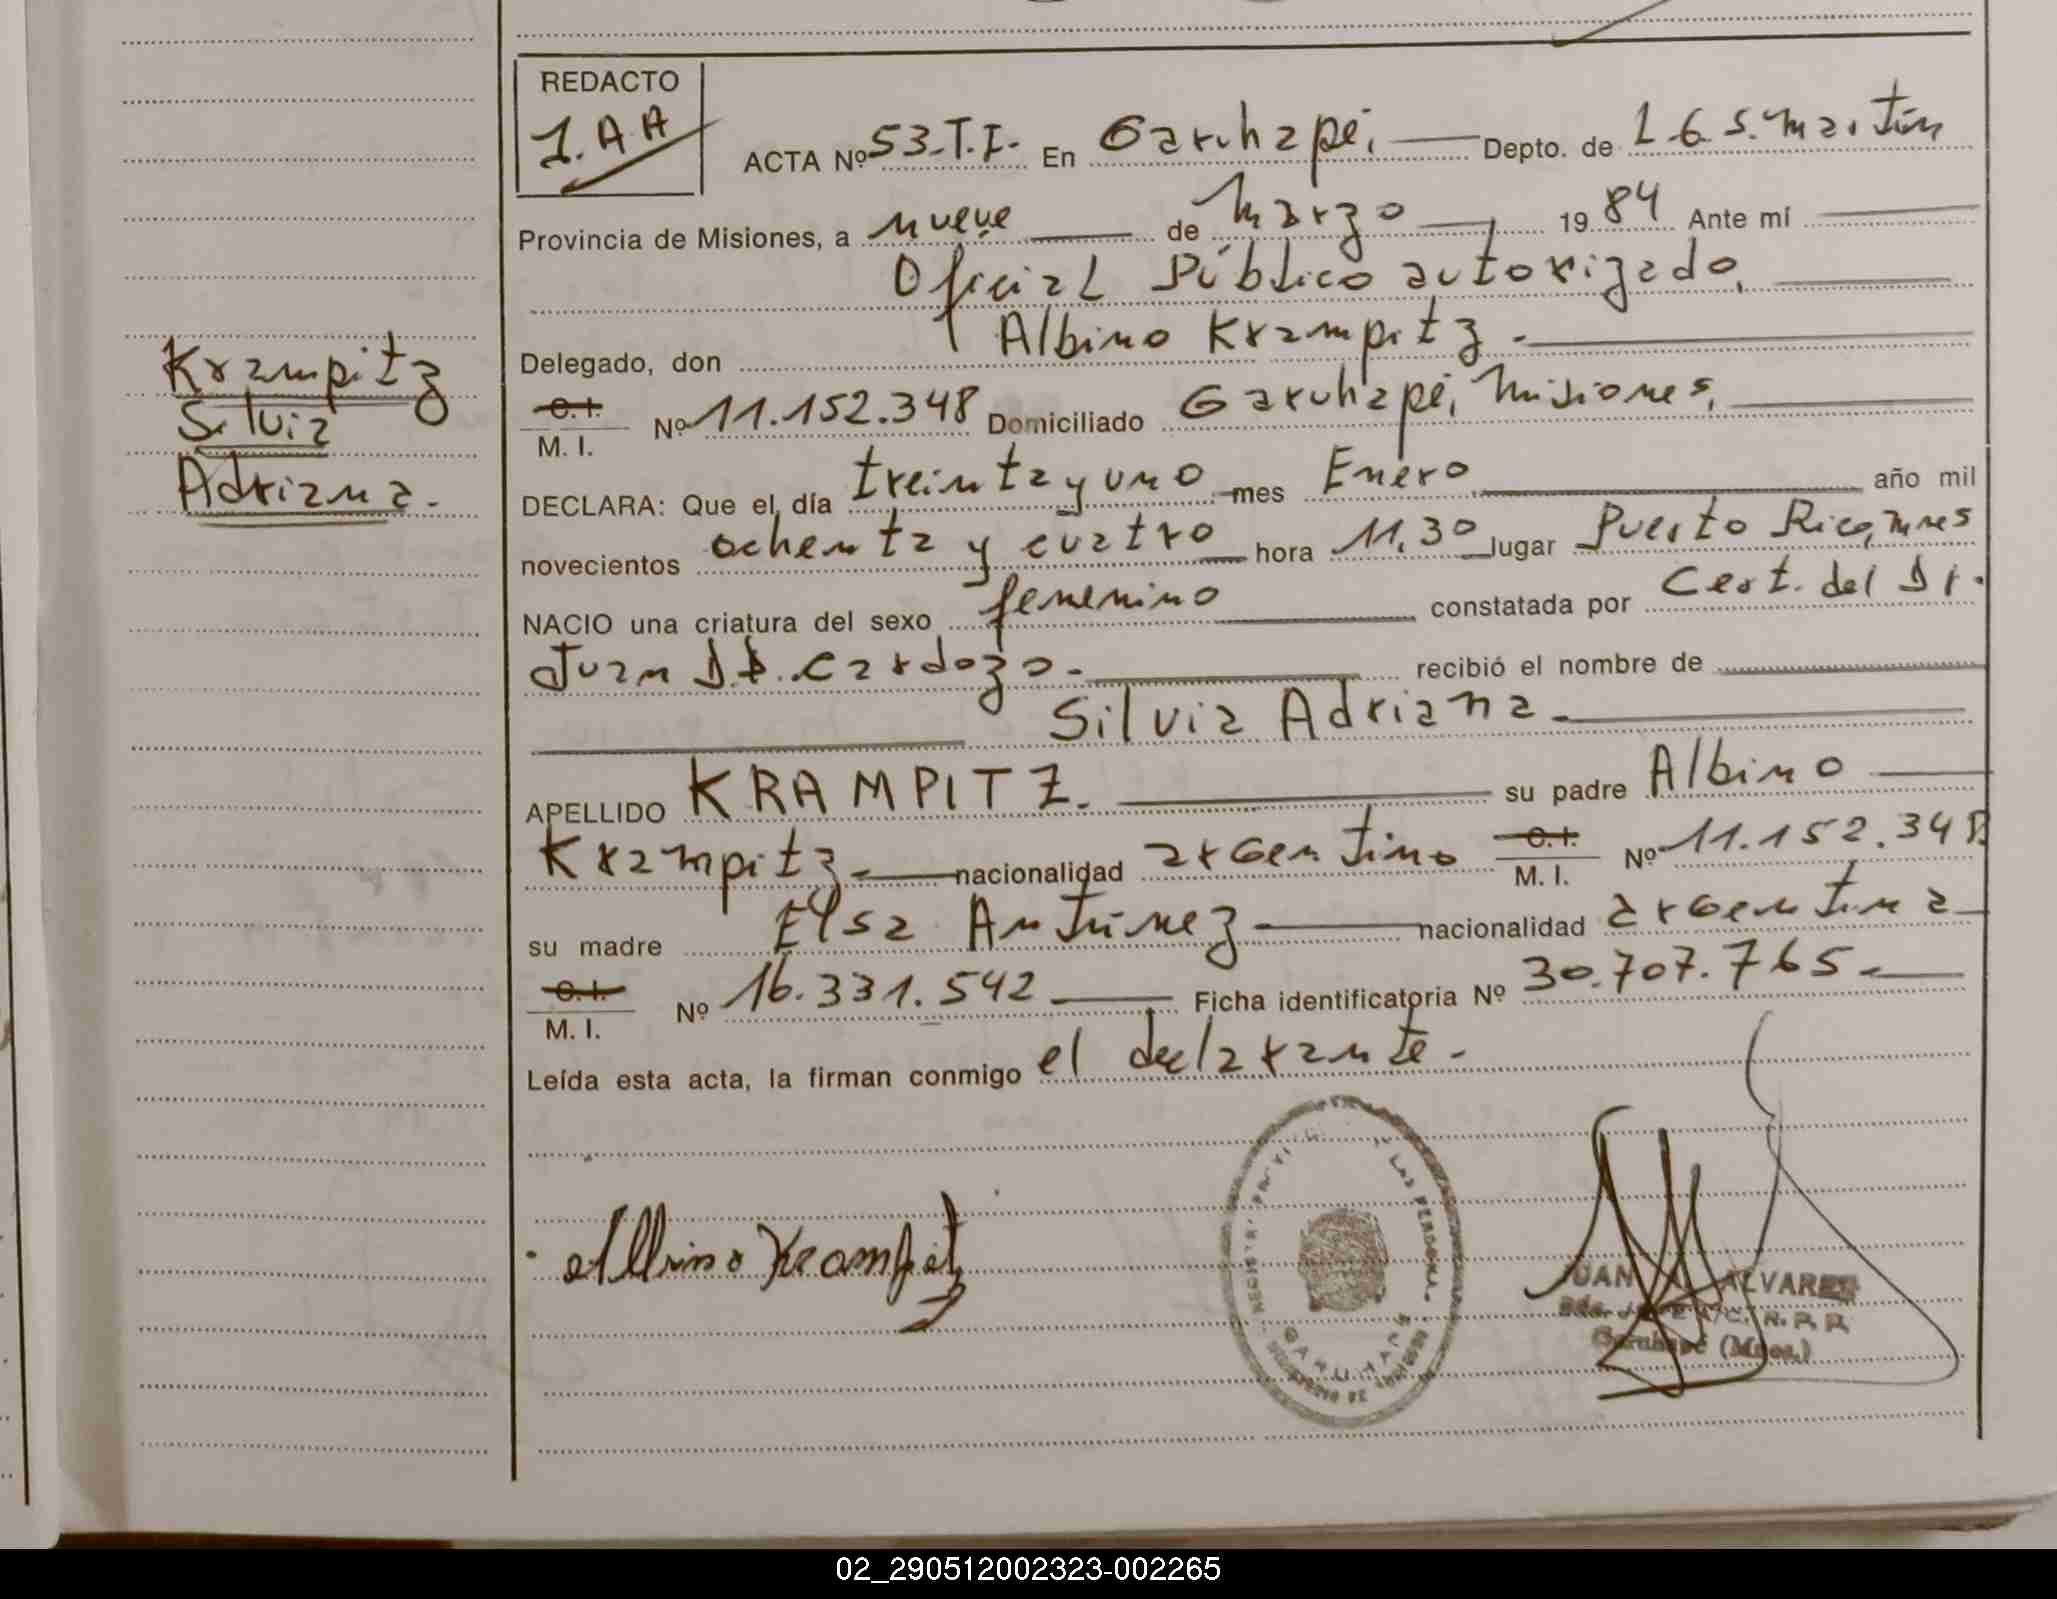 REDACTO
J.A.A
ACTA Nº 53-T.I. En Garuhapé, Depto. de L G S. Martín
Provincia de Misiones, a nueve de Marzo 19 84 Ante mí
Oficial Público autorizado,
Delegado, don Albino Krampitz.
C. I.
M. I. Nº 11.152.348 Domiciliado Garuhapé, Misiones,
Krampitz
Silvia
Adriana.
DECLARA: Que el día treinta y uno mes Enero año mil
novecientos ochenta y cuatro hora 11,30 lugar Puerto Rico, Mnes
NACIO una criatura del sexo femenino constatada por Cert. del Dr.
Juan D. Cardozo. recibió el nombre de
Silvia Adriana.
APELLIDO KRAMPITZ. su padre Albino
Krampitz nacionalidad argentino C. I. M. I. Nº 11.152.348
su madre Elsa Antúnez nacionalidad argentina
C. I.
M. I. Nº 16.331.542 Ficha identificatoria Nº 30.707.765.
Leída esta acta, la firman conmigo el declarante.
Albino Krampitz
GARUHAPE
JUAN ALVAREZ
Garuhapé (Mnes.)
02_290512002323-002265